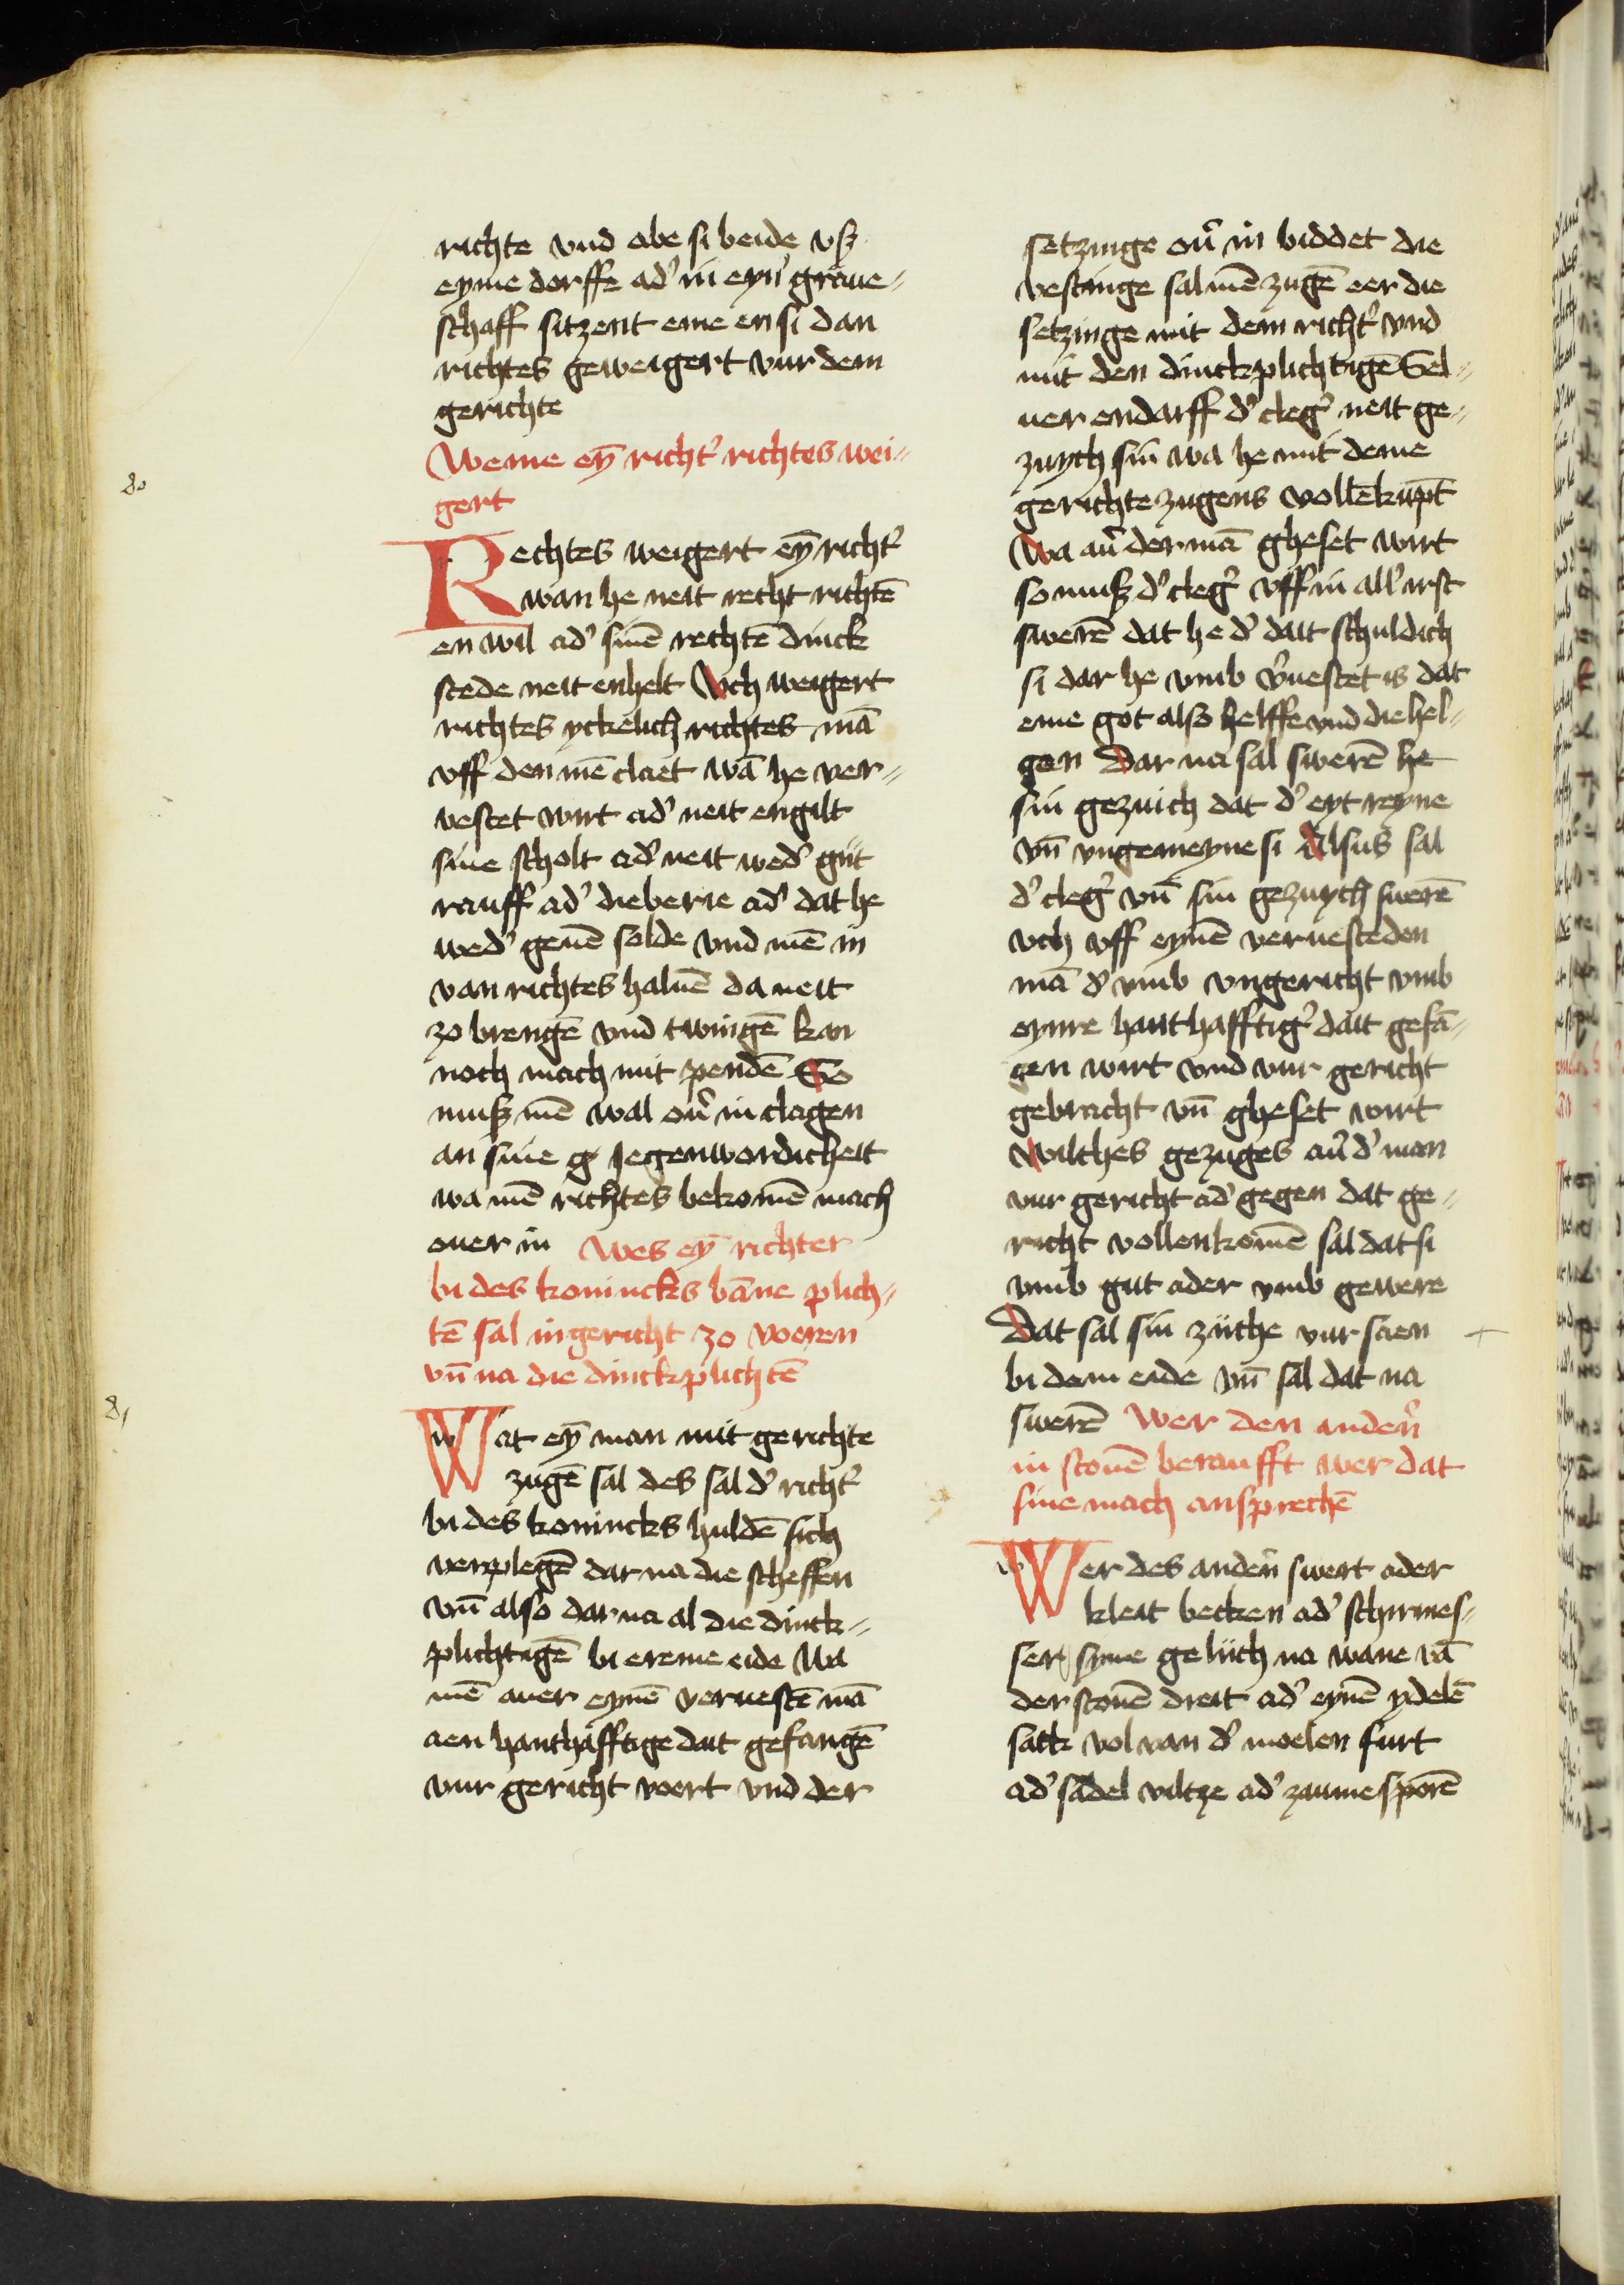 richte vnd abe si beide vß
eyme dorffe adʾ in eynʾ graue-
schaff sitzent eme en si dan
richtes geweigert vur dem
gerichte
Weme eȳ richtʾ richtes wei-
gert
80
Rechtes weigert eȳ richtʾ
wan he neit recht richtē
en wil adʾ sinē rechtē dinck
stede neit enhelt Vch weigert
richtes yckelich richtes mā
vff den mē claet wā he ver-
vestet wirt adʾ neit engilt
sine scholt adʾ neit wedʾ gut
rauff adʾ dieberie adʾ dat he
wedʾ geuē solde vnd mē in
van richtes haluē da neit
zo brengē vnd twingē kan
noch mach mit pendē So
muß mē wal ouʾ in clagen
an sine g iegenwordicheit
wa mē richtes bekomē mach
ouer in Wes eȳ richter
bi des konincks bāne plich-
tē sal in gericht zo voeren
vn̄ na die dinckplichtē
81
Wat eȳ man mit gerichte
zugē sal des sal dʾ richtʾ
bi des konincks huldē sich
verplegē dar na die scheffen
vn̄ also dar na al die dinck-
plichtigē bi ereme eide Wa
mē auer eynē veruestē mā
aen hanthafftige dait gefangē
vur gericht voert vnd der
setzinge ouʾ in biddet die
vestinge sal mē zugē eer die
setzinge mit dem richtʾ vnd
mit den dinckplichtigē Sel-
uer endarff dʾ clegʾ neit ge-
zuych sin wa he mit deme
gerichte zugens vollēkūpt
Wa auʾ der mā gheset wirt
so muß dʾ clegʾ vff in allʾ irst
swerē dat he dʾ dait schuldich
si dar he vmb vʾuestet is dat
eme got also helffe vnd die hel-
gen Dar na sal swerē he
sin gezuich dat dʾ eyt reyne
vn̄ vngemeyne si Alsus sal
dʾ clegʾ vn̄ sin gezuych swerē
vch vff eynē veruesteden
mā dʾ vmb vngericht vmb
eynre hanthafftigʾ dait gefā-
gen wirt vnd vur gericht
gebracht vn̄ gheset wirt
Wilches gezuges auʾ dʾ man
vur gericht adʾ gegen dat ge-
richt vollenkomē sal dat si
vmb gut ader vmb gewere
Dat sal sin zuche vur saen
bi dem eide vn̄ sal dat na
swerē Wer den andern̄
in stouē beraufft wer dat
sine mach ansprechē
Wer des andern̄ swert ader
kleit becken adʾ schirmes-
ser syme gelich na wane vā
der stouē dreit adʾ eynē ydelē
sack vol van dʾ moelen furt
adʾ sadel viltze adʾ zaume sporē